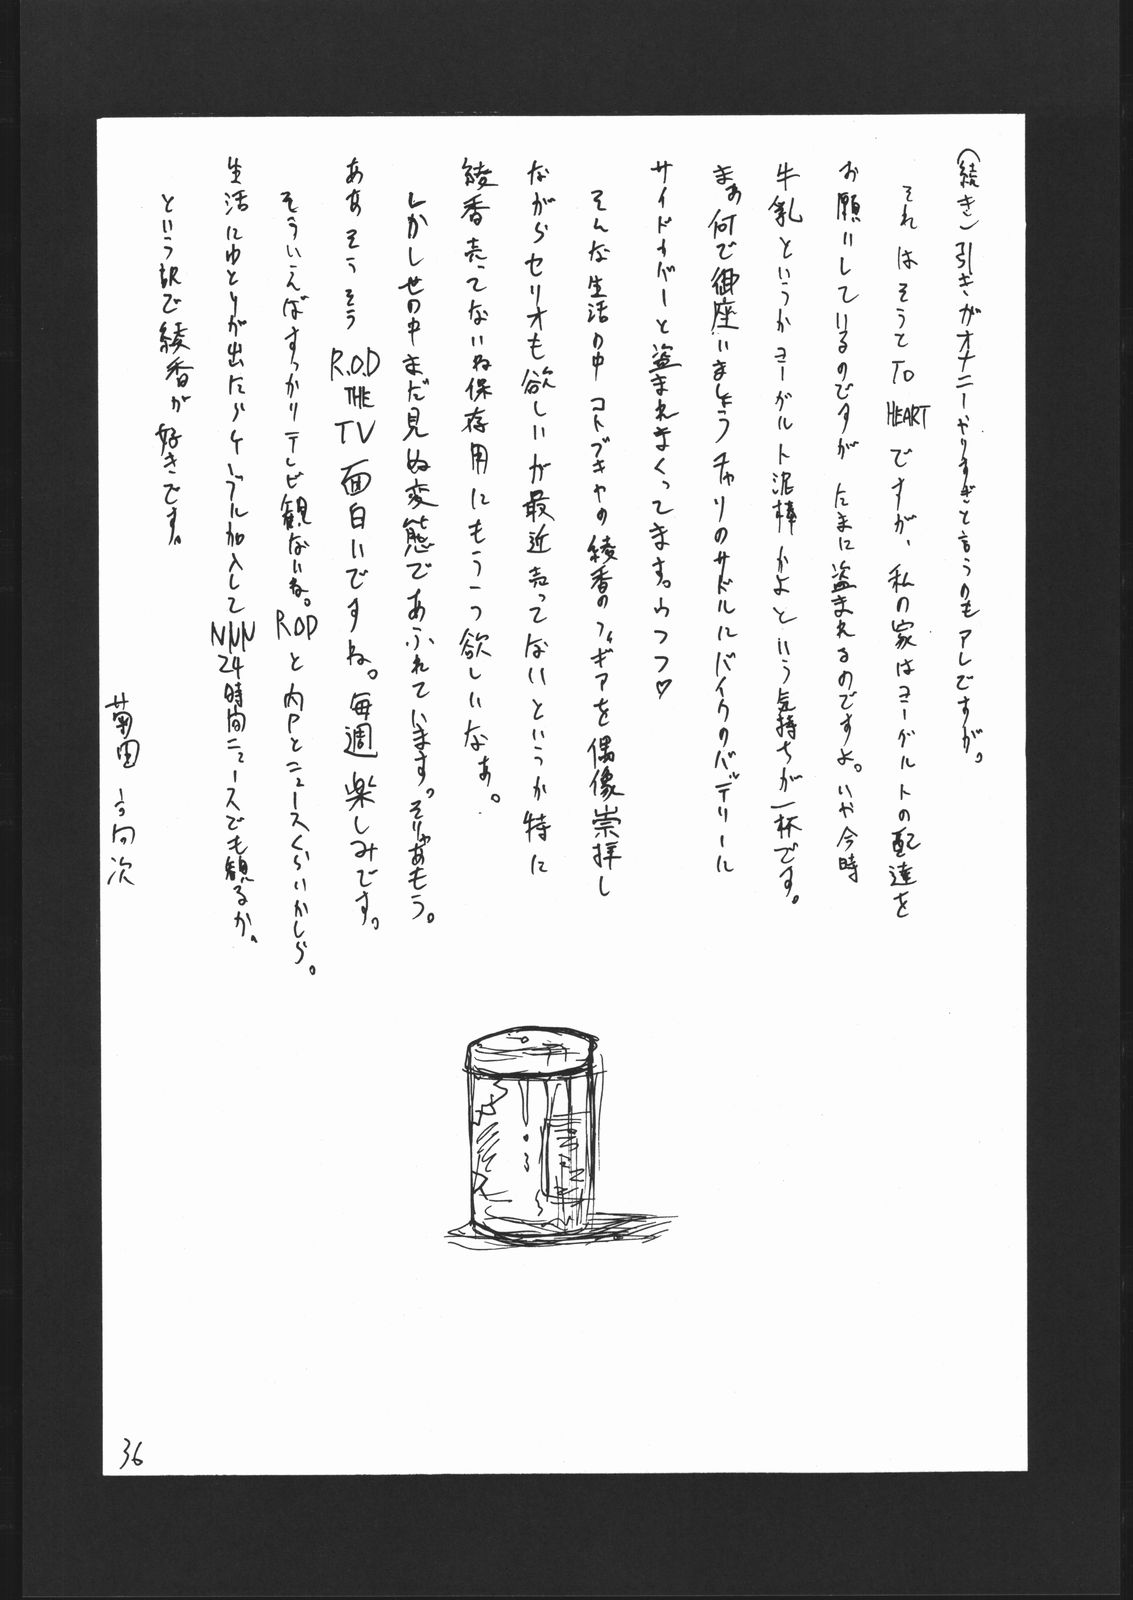 (続き) 引きがオナニーやりすぎと言うのもアレですが。
それはそうと To HEART ですが、私の家はヨーグルトの配達を
お願いしているのですが たまに盗まれるのですよ。いや今時
牛乳というかヨーグルト泥棒かよという気持ちが一杯です。
まぁ何で御座いましょう チャリのサドルにバイクのバッテリーに
サイドカバーと盗まれまくってます。ウフフ♡
そんな生活の中 コトブキヤの綾香のフィギアを偶像崇拝し
ながらセリオも欲しいが最近売ってないというか特に
綾香売ってないね保存用にもう一つ欲しいなぁ。
しかし世の中まだ見ぬ変態であふれています。そりゃあもう。
ああそうそう R.O.D THE TV 面白いですね。毎週楽しみです。
そういえばすっかりテレビ観ないね。RODと内Pとニュースくらいかしら。
生活にゆとりが出たらケーブル加入してNNN24時間ニュースでも観るか。
という訳で綾香が好きです。
菊田 次
36